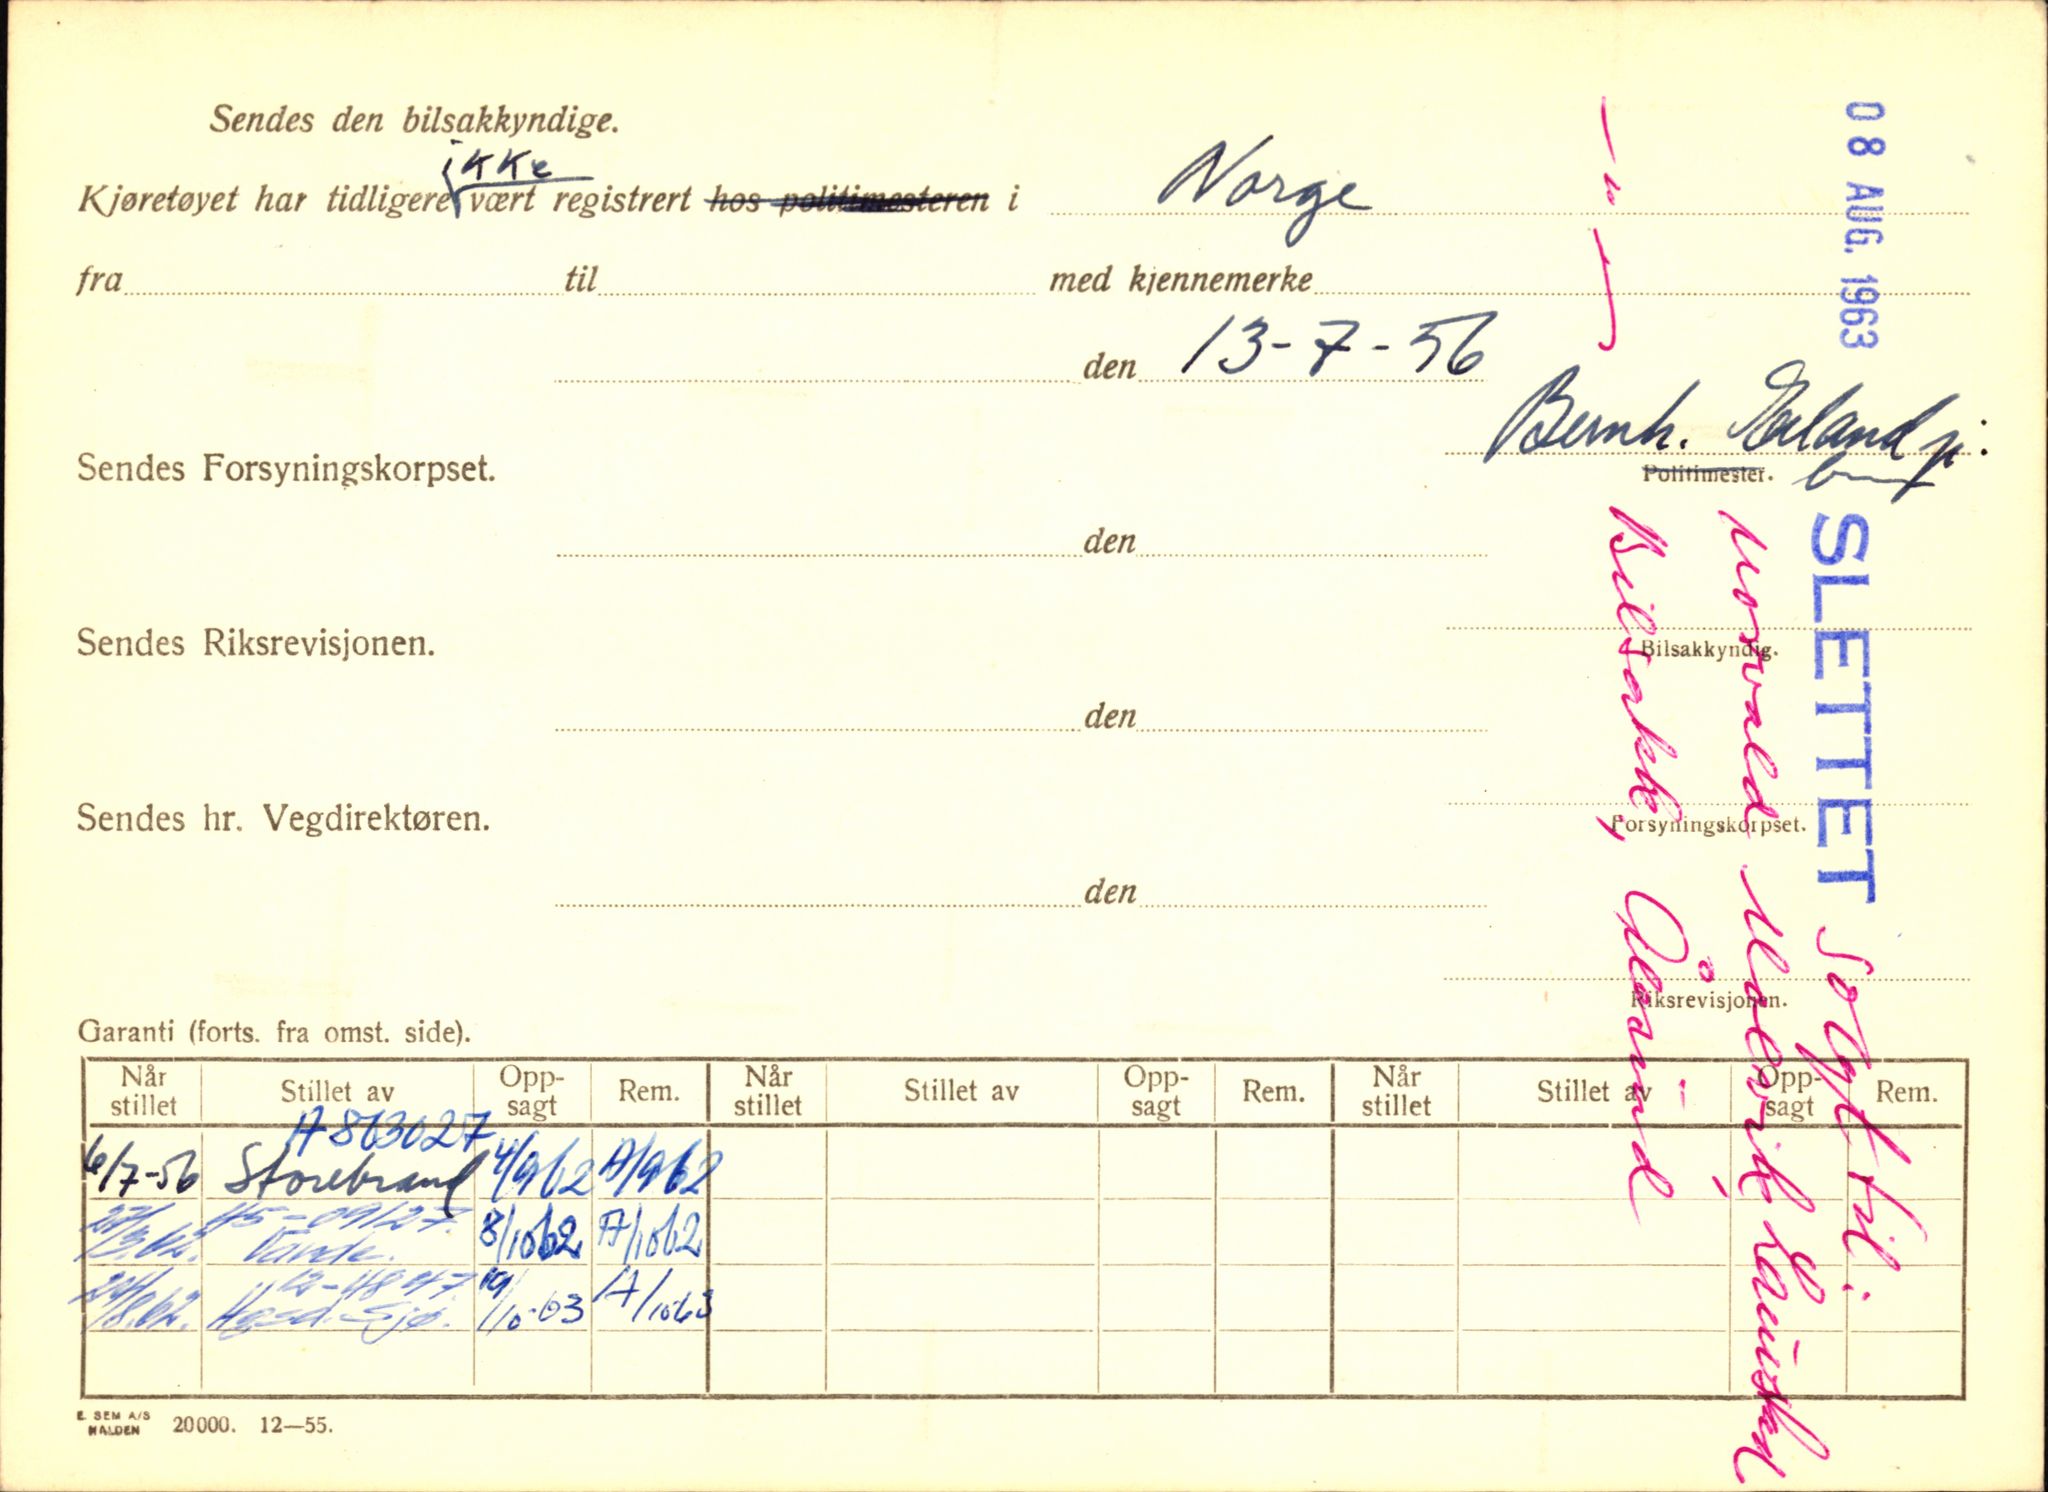 Sendes den bilsakkyndige.
ikke
Kjøretøyet har tidligere vært registrert hos politimesteren i Norge
fra til med kjennemerke
den 13-7-56
Bernh.
Sendes Forsyningskorpset.
Politimester.
den
Bilsakkyndig.
Sendes Riksrevisjonen.
den
Forsyningskorpset.
Sendes hr. Vegdirektøren.
den
Riksrevisjonen.
08 AUG. 1963
SLETTET Solgt til:
Bilsakk, Ålesund
Garanti (forts. fra omst. side).
Når stillet Stillet av Opp-sagt Rem. Når stillet Stillet av Opp-sagt Rem. Når stillet Stillet av Opp-sagt Rem.
A 863027
6/7-56 Storebrand 4/9 62 A/9 62
45-09127
27/3.62. 8/10 62 A/10 62
12-4847.
24/8.62. Sjø. 10-63 A/10 63
E. SEM A/S
HALDEN 20000. 12—55.